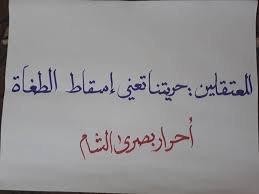 للمعتقلين : حريتنا تعني إسقاط الطغاة
أحرار بصرى الشام